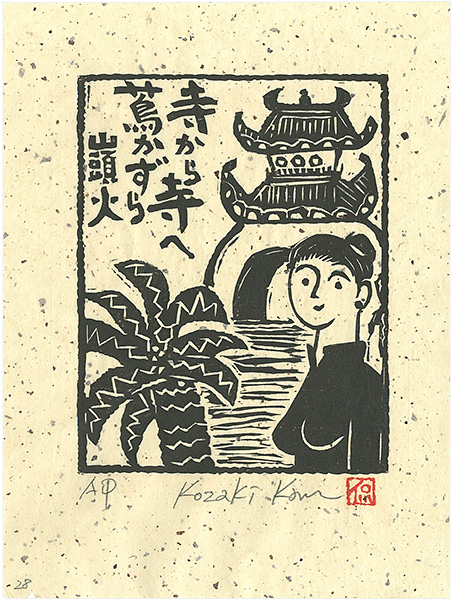 寺から寺へ
蔦かずら
山頭火
AP
Kozaki Kan
侃
28